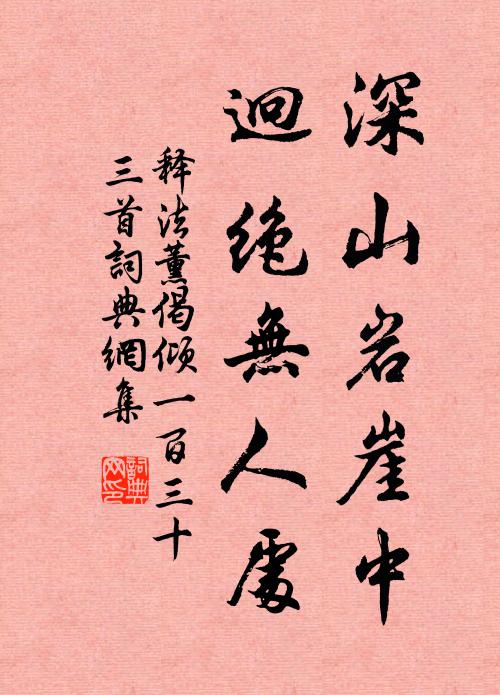 深山岩崖中
迥绝無人處
释法薰偈倾一百三十
三首詞典網集
詞典
网印